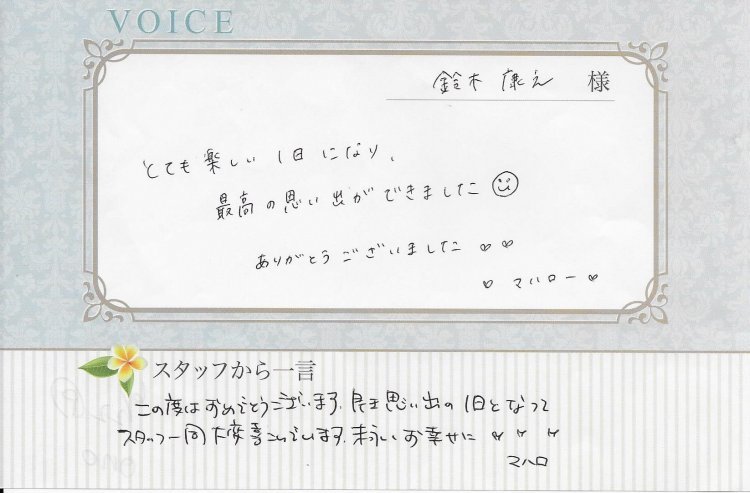 VOICE
鈴木 康え 様
とても楽しい1日になり、
最高の思い出ができました
ありがとうございました ♡ ♡
♡ マハロー ♡
スタッフから一言
この度はおめでとうございます。良き思い出の1日となって
スタッフ一同大変喜んでいます。末永いお幸せに ♡ ♡ ♡
マハロ